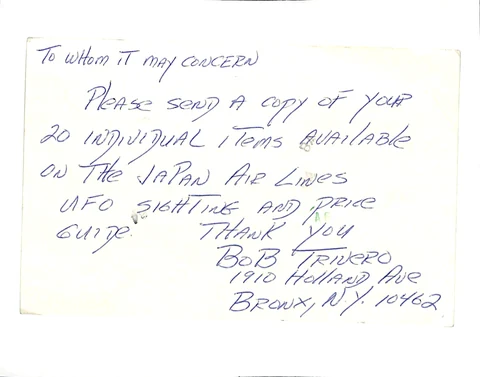 To whom it may concern
Please send a copy of your
20 individual items available
on the Japan Air Lines
UFO sighting and price
guide. Thank you
Bob Trivero
1910 Holland Ave
Bronx, N.Y. 10462